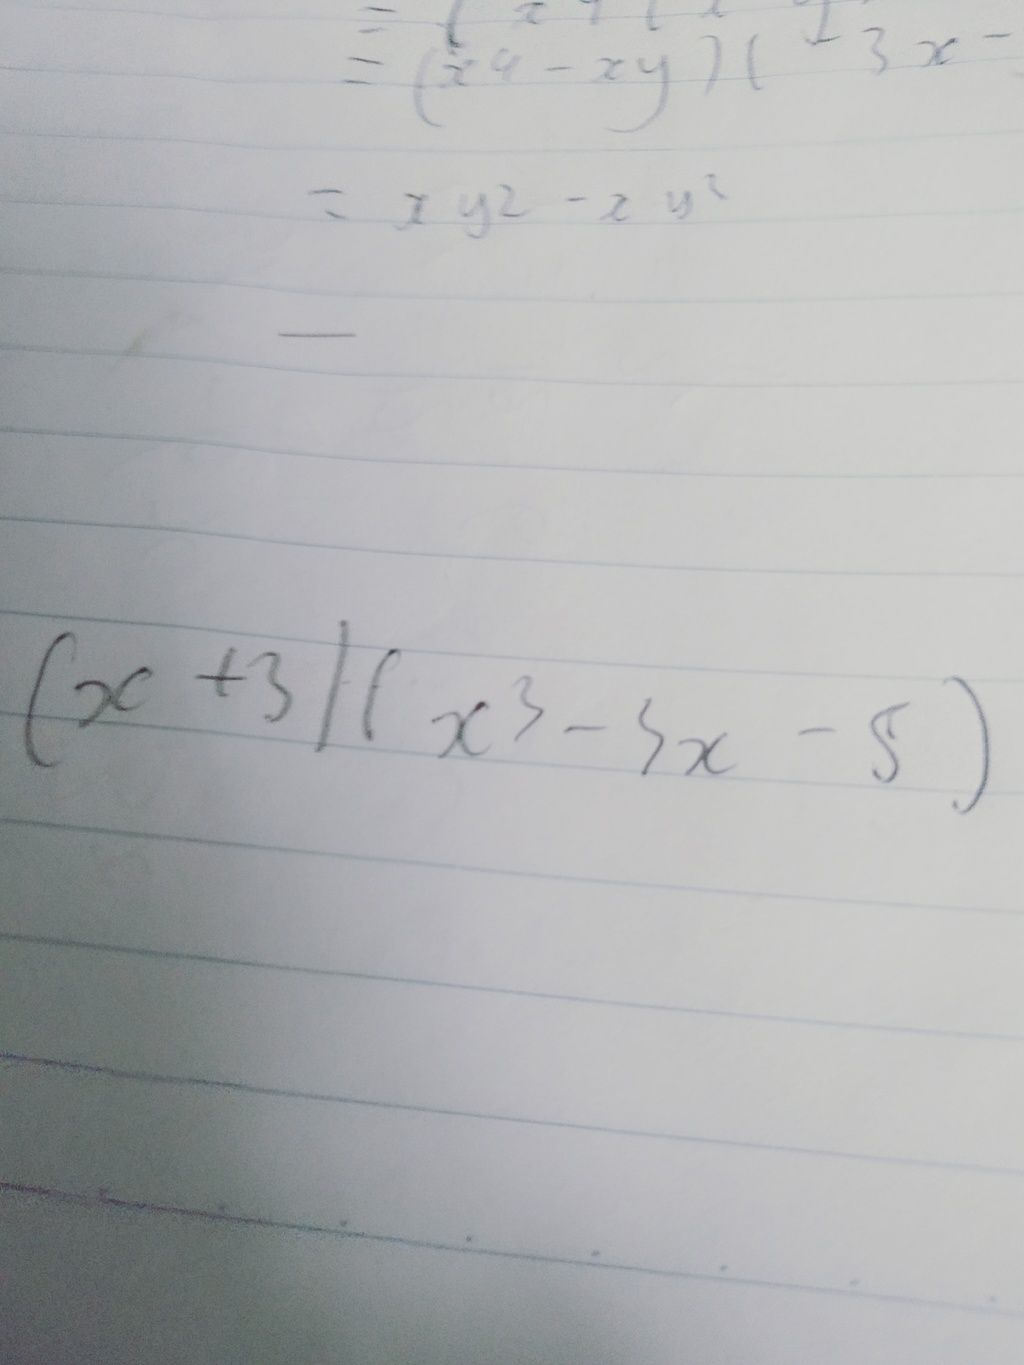 = (x4 - xy)( - 3x -
= xy2 - xy²
(x + 3)(x³ - 3x - 5)